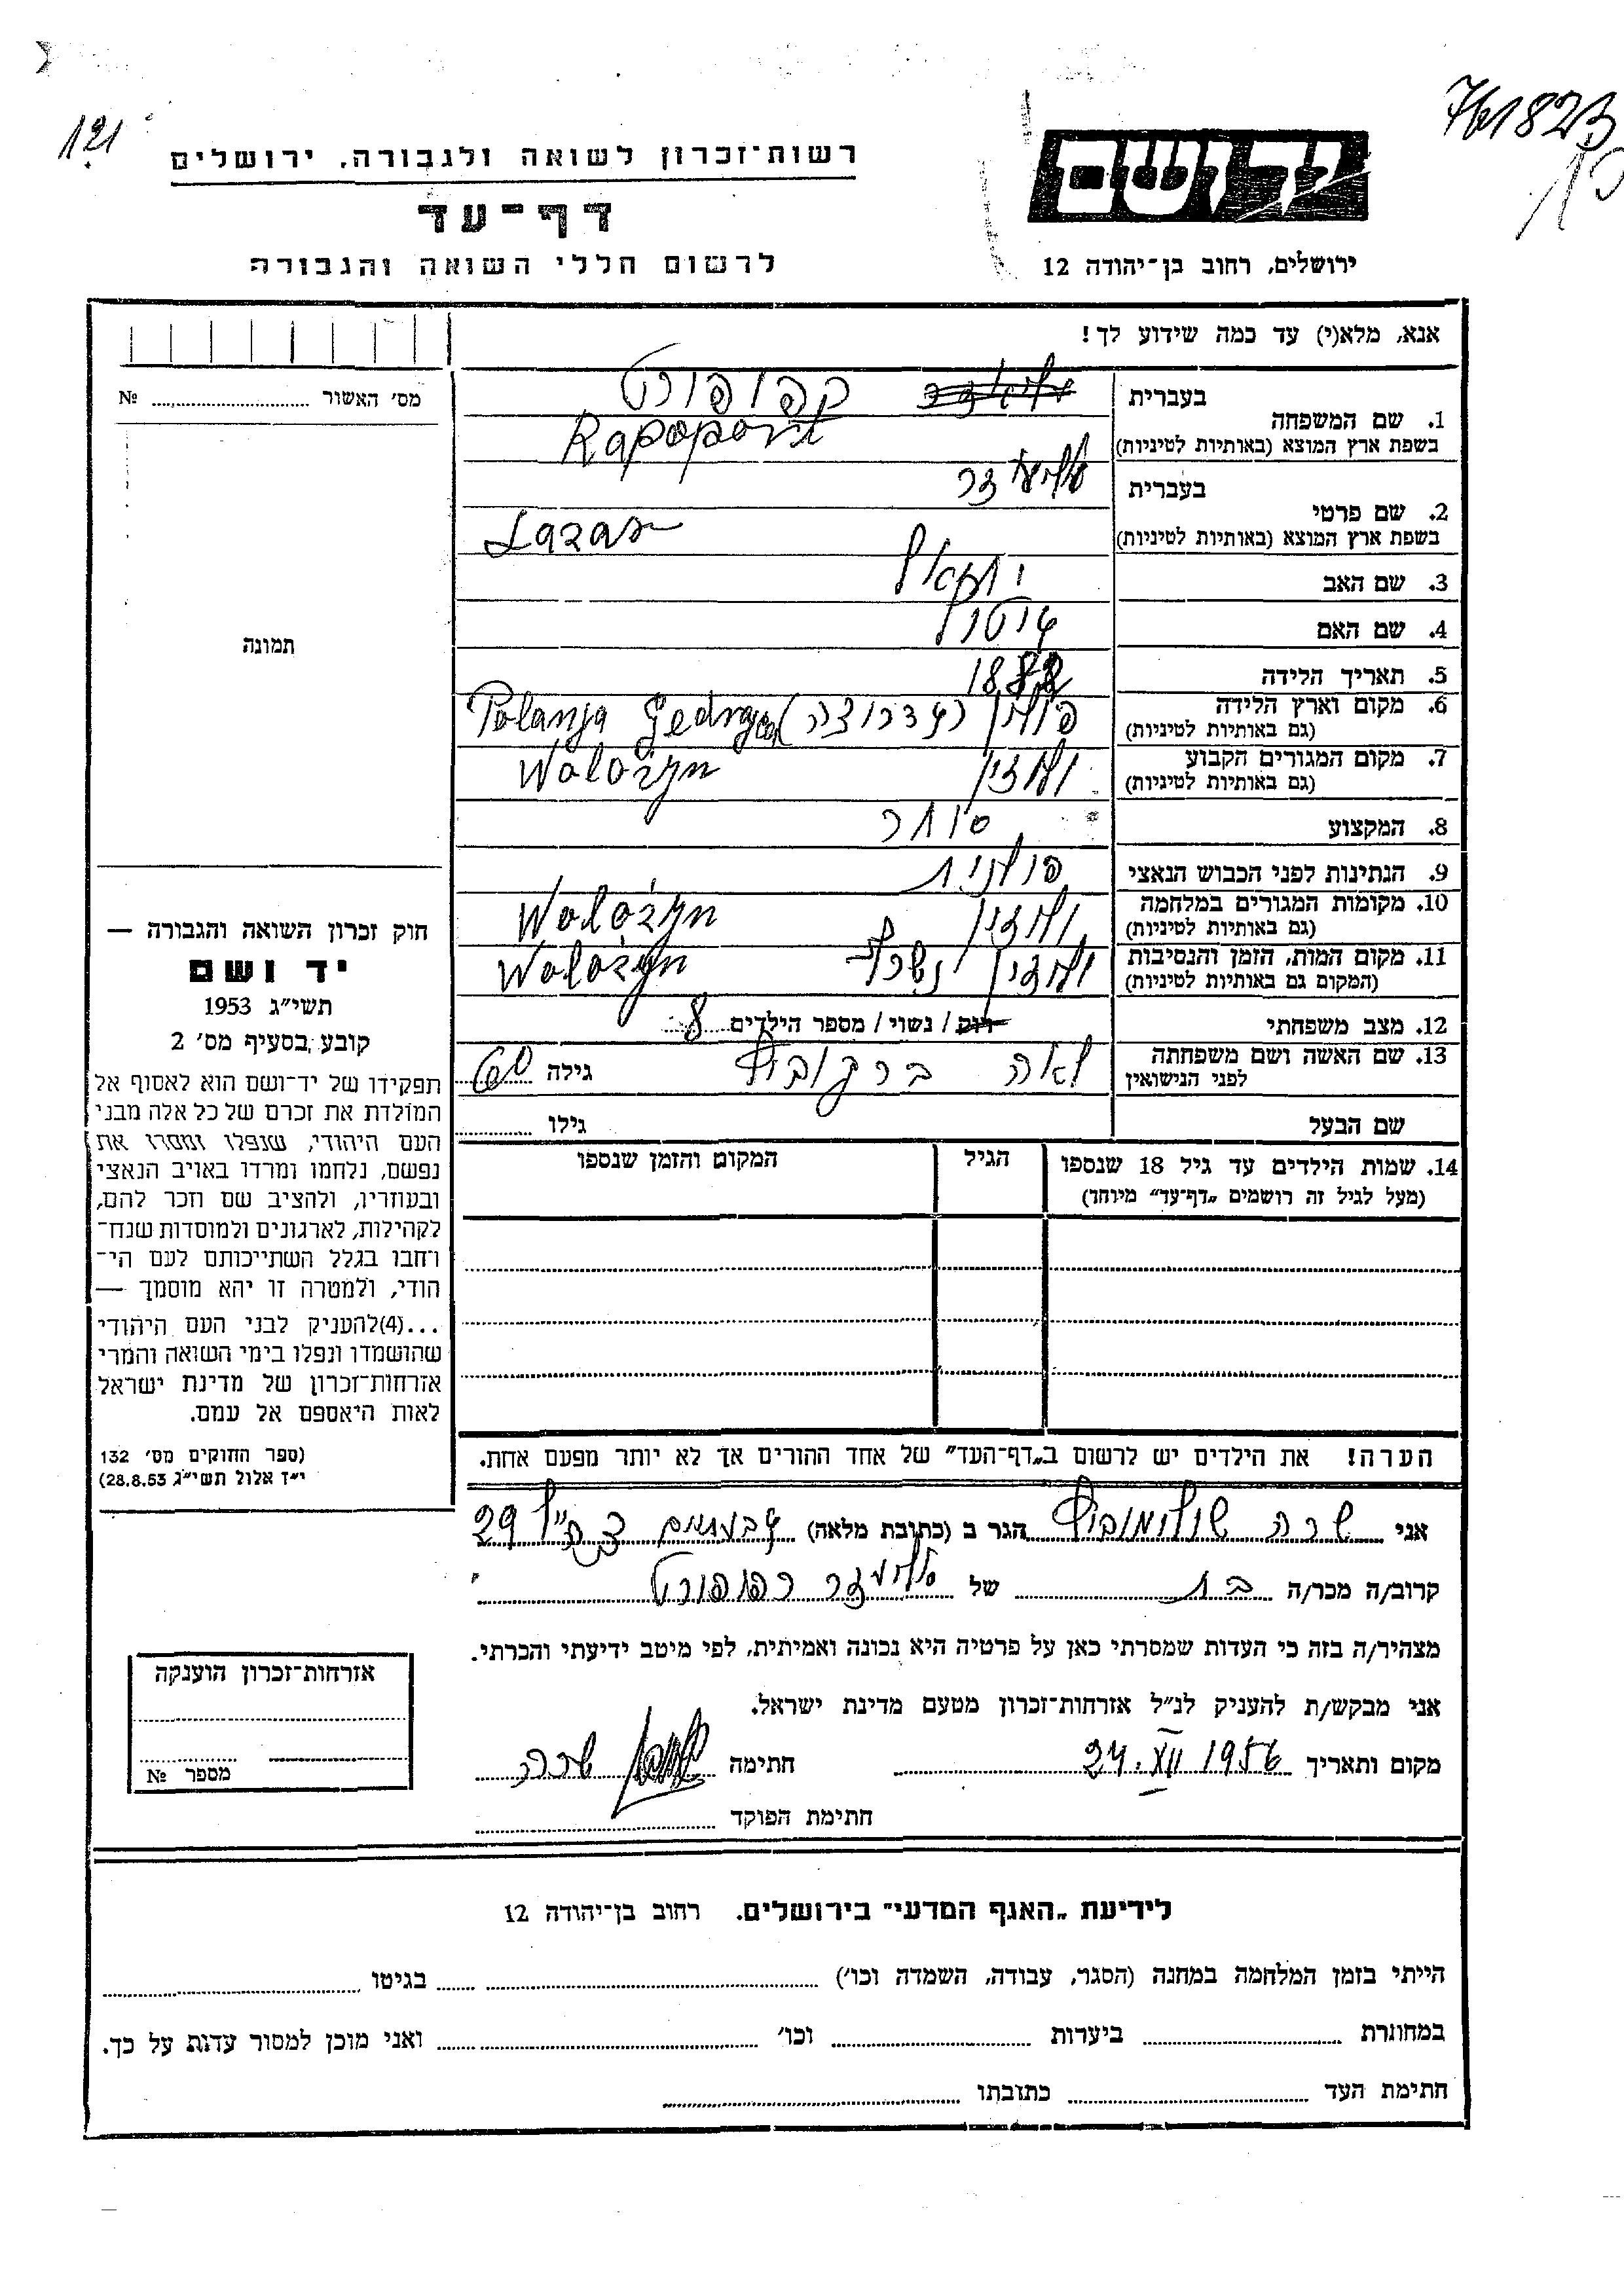 761823
121
רשות־זכרון לשואה ולגבורה, ירושלים
יד ושם
דף־עד
לרשום חללי השואה והגבורה
ירושלים, רחוב בן־יהודה 12
אנא, מלא(י) עד כמה שידוע לך!
מס' האשור № 
תמונה
1. שם המשפחה
בעברית רפופורט
בשפת ארץ המוצא (באותיות לטיניות) Rapoport
2. שם פרטי
בעברית אליעזר
בשפת ארץ המוצא (באותיות לטיניות) Lazar
3. שם האב יחזקאל
4. שם האם
5. תאריך הלידה 1888
6. מקום וארץ הלידה פולין
(גם באותיות לטיניות) Polanja
7. מקום המגורים הקבוע ולוז'ין
(גם באותיות לטיניות) Wolożyn
8. המקצוע סוחר
9. הנתינות לפני הכבוש הנאצי פולנית
10. מקומות המגורים במלחמה ולוז'ין
(גם באותיות לטיניות) Wolożyn
11. מקום המות, הזמן והנסיבות ולוז'ין נשרף
(המקום גם באותיות לטיניות) Wolożyn
12. מצב משפחתי רווק / נשוי / מספר הילדים 8
13. שם האשה ושם משפחתה לאה ברקוביץ גילה 60
לפני הנישואין
שם הבעל גילו
14. שמות הילדים עד גיל 18 שנספו
(מעל לגיל זה רושמים „דף־עד" מיוחד)
הגיל
המקום והזמן שנספו
חוק זכרון השואה והגבורה —
יד ושם
תשי"ג 1953
קובע בסעיף מס' 2
תפקידו של יד־ושם הוא לאסוף אל
המולדת את זכרם של כל אלה מבני
העם היהודי, שנפלו ומסרו את
נפשם, נלחמו ומרדו באויב הנאצי
ובעוזריו, ולהציב שם וזכר להם,
לקהילות, לארגונים ולמוסדות שנח־
רחבו בגלל השתייכותם לעם הי־
הודי, ולמטרה זו יהא מוסמך —
...(4)להעניק לבני העם היהודי
שהושמדו ונפלו בימי השואה והמרי
אזרחות־זכרון של מדינת ישראל
לאות היאספם אל עמם.
(ספר החוקים מס' 132
י"ז אלול תשי"ג 28.8.53)
הערה! את הילדים יש לרשום ב„דף־העד" של אחד ההורים אך לא יותר מפעם אחת.
אני שרה שולימוביץ הגר ב (כתובת מלאה) גבעתיים צה"ל 29
קרוב/ה מכר/ה בת של אליעזר רפופורט
מצהיר/ה בזה כי העדות שמסרתי כאן על פרטיה היא נכונה ואמיתית, לפי מיטב ידיעתי והכרתי.
אני מבקש/ת להעניק לנ"ל אזרחות־זכרון מטעם מדינת ישראל.
מקום ותאריך 24.XII 1956 חתימה שרה
חתימת הפוקד
אזרחות־זכרון הוענקה
מספר №
לידיעת „האגף המדעי" בירושלים. רחוב בן־יהודה 12
הייתי בזמן המלחמה במחנה (הסגר, עבודה, השמדה וכו') בגיטו
במחתרת ביערות וכו' ואני מוכן למסור עדות על כך.
חתימת העד כתובתו